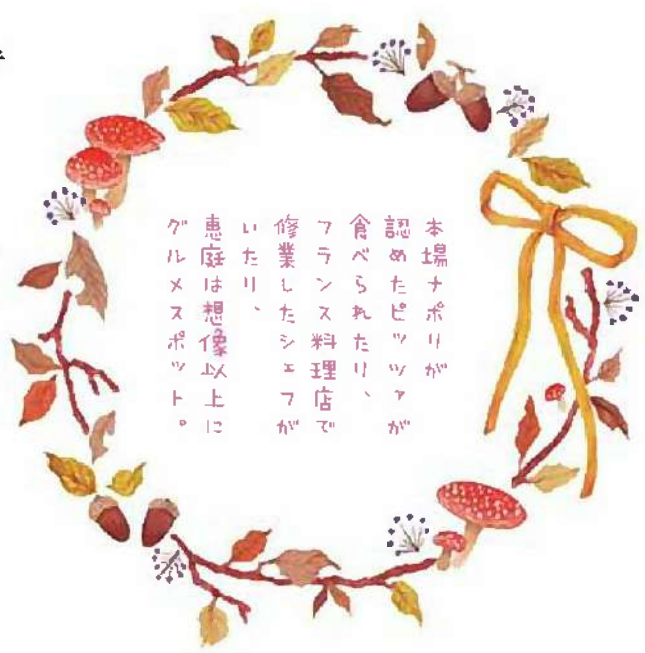 本場ナポリが
認めたピッツァが
食べられたり、
フランス料理店で
修業したシェフが
いたり、
恵庭は想像以上に
グルメスポット。